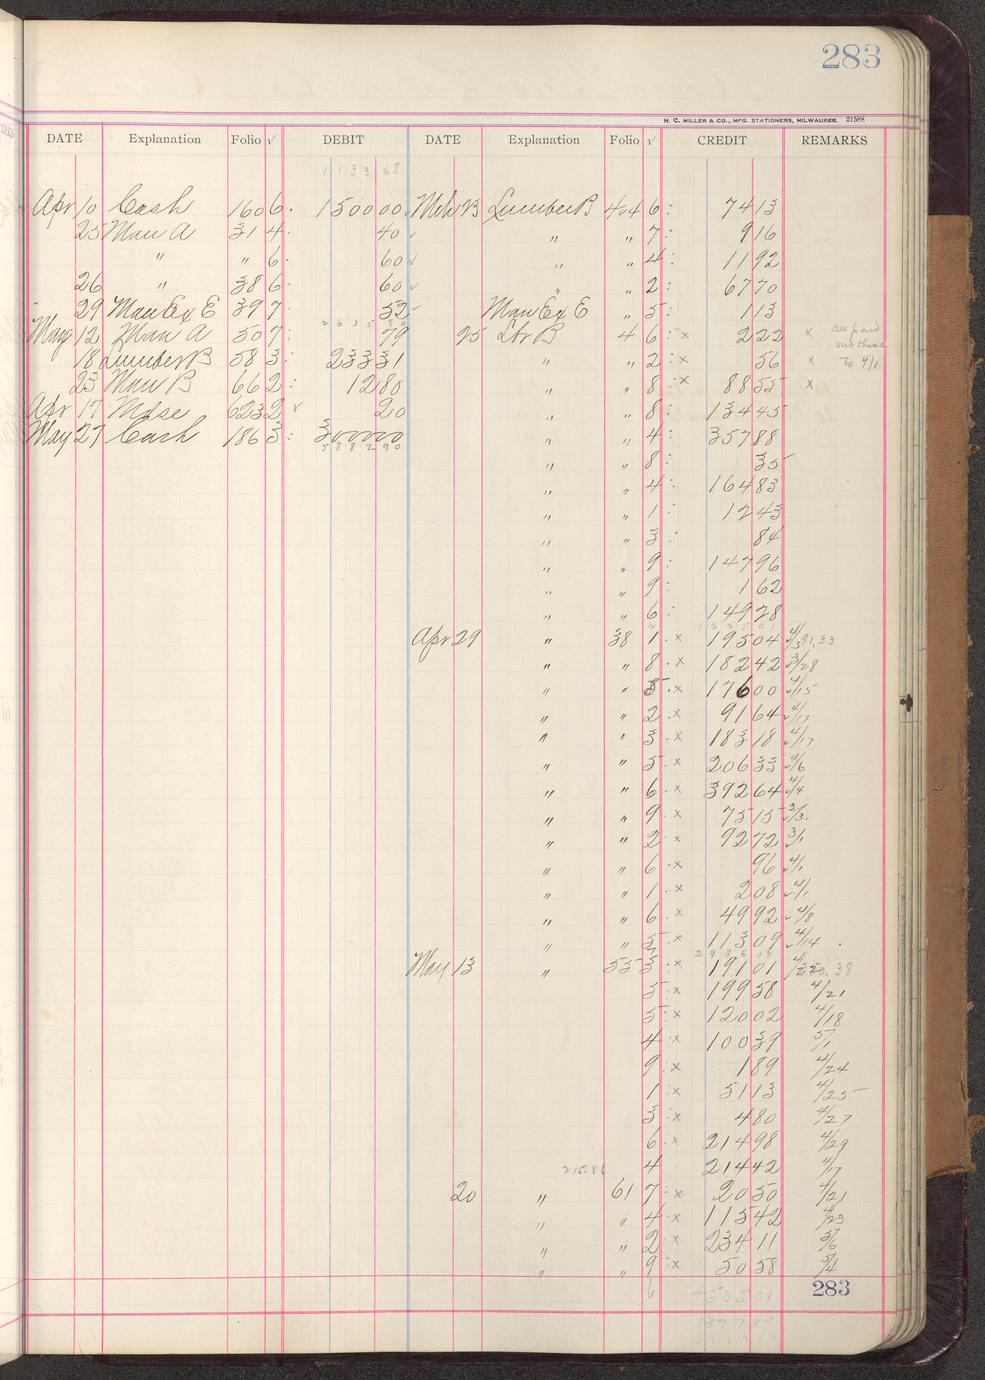 283
H. C. MILLER & CO., MFG. STATIONERS, MILWAUKEE. 21588
DATE Explanation Folio √ DEBIT DATE Explanation Folio √ CREDIT REMARKS
1 1 3 3 6 8
Apr 10 Cash 160 6 1500 00 Mch 13 Lumber B 404 6 74 13
25 Man A 31 4 40 " " 7 9 16
" " 6 60 " " 4 11 92
26 " 38 6 60 " " 2 67 70
29 Man Ex E 39 7 52 Man Ex E " 5 1 13
May 12 Man A 50 7 79 25 Lbr B 4 6 x 2 22 x all paid
18 Lumber B 58 3 233 31 " " 2 x 56 x To 4/1
23 Man B 66 2 12 80 " " 8 x 88 55 x
Apr 17 Mdse 623 2 √ 20 " " 8 134 45
May 27 Cash 186 3 3000 00 " " 4 357 88
5 8 8 2 9 0
" " 8 35
" " 4 164 83
" " 1 12 43
" " 3 84
" " 9 147 96
" " 9 1 62
" " 6 149 28
Apr 29 " 38 1 x 195 04 4/3
" " 8 x 182 42 3/28
" " 5 x 176 00 4/15
" " 2 x 91 64 4/17
" " 3 x 183 18 4/17
" " 5 x 206 33 4/6
" " 6 x 392 64 4/4
" " 9 x 75 15 3/31
" " 2 x 92 72 3/1
" " 6 x 96 4/1
" " 1 x 2 08 4/1
" " 6 x 49 92 4/8
" " 5 x 113 09 4/14
May 13 " 55 3 x 191 01
5 x 199 58 4/21
5 x 120 02 4/18
4 x 100 39 5/1
9 x 1 89 4/24
1 x 51 13 4/25
3 x 4 80 4/27
6 x 214 98 4/29
4 214 42 4/17
20 " 61 7 x 20 50 4/21
" " 4 x 115 42 4/23
" " 2 x 234 11 5/6
" " 9 x 50 58 5/4
283